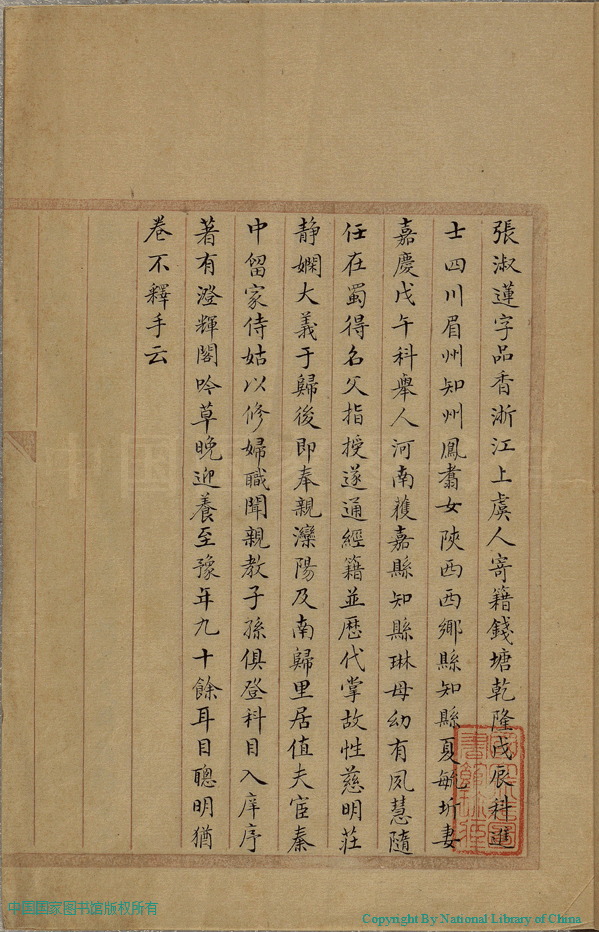 張淑蓮字品香浙江上虞人寄籍錢塘乾隆戊辰科進
士四川眉州知州鳳翥女陝西西鄉縣知縣夏毓圻妻
嘉慶戊午科舉人河南獲嘉縣知縣琳母幼有夙慧隨
任在蜀得名父指授遂通經籍並歷代掌故性慈明莊
靜嫻大義于歸後即奉親灤陽及南歸里居值夫宦秦
中留家侍姑以修婦職聞親教子孫俱登科目入庠序
著有澄輝閣吟草晚迎養至豫年九十餘耳目聰明猶
卷不釋手云
中国国家图书馆版权所有
Copyright By National Library of China